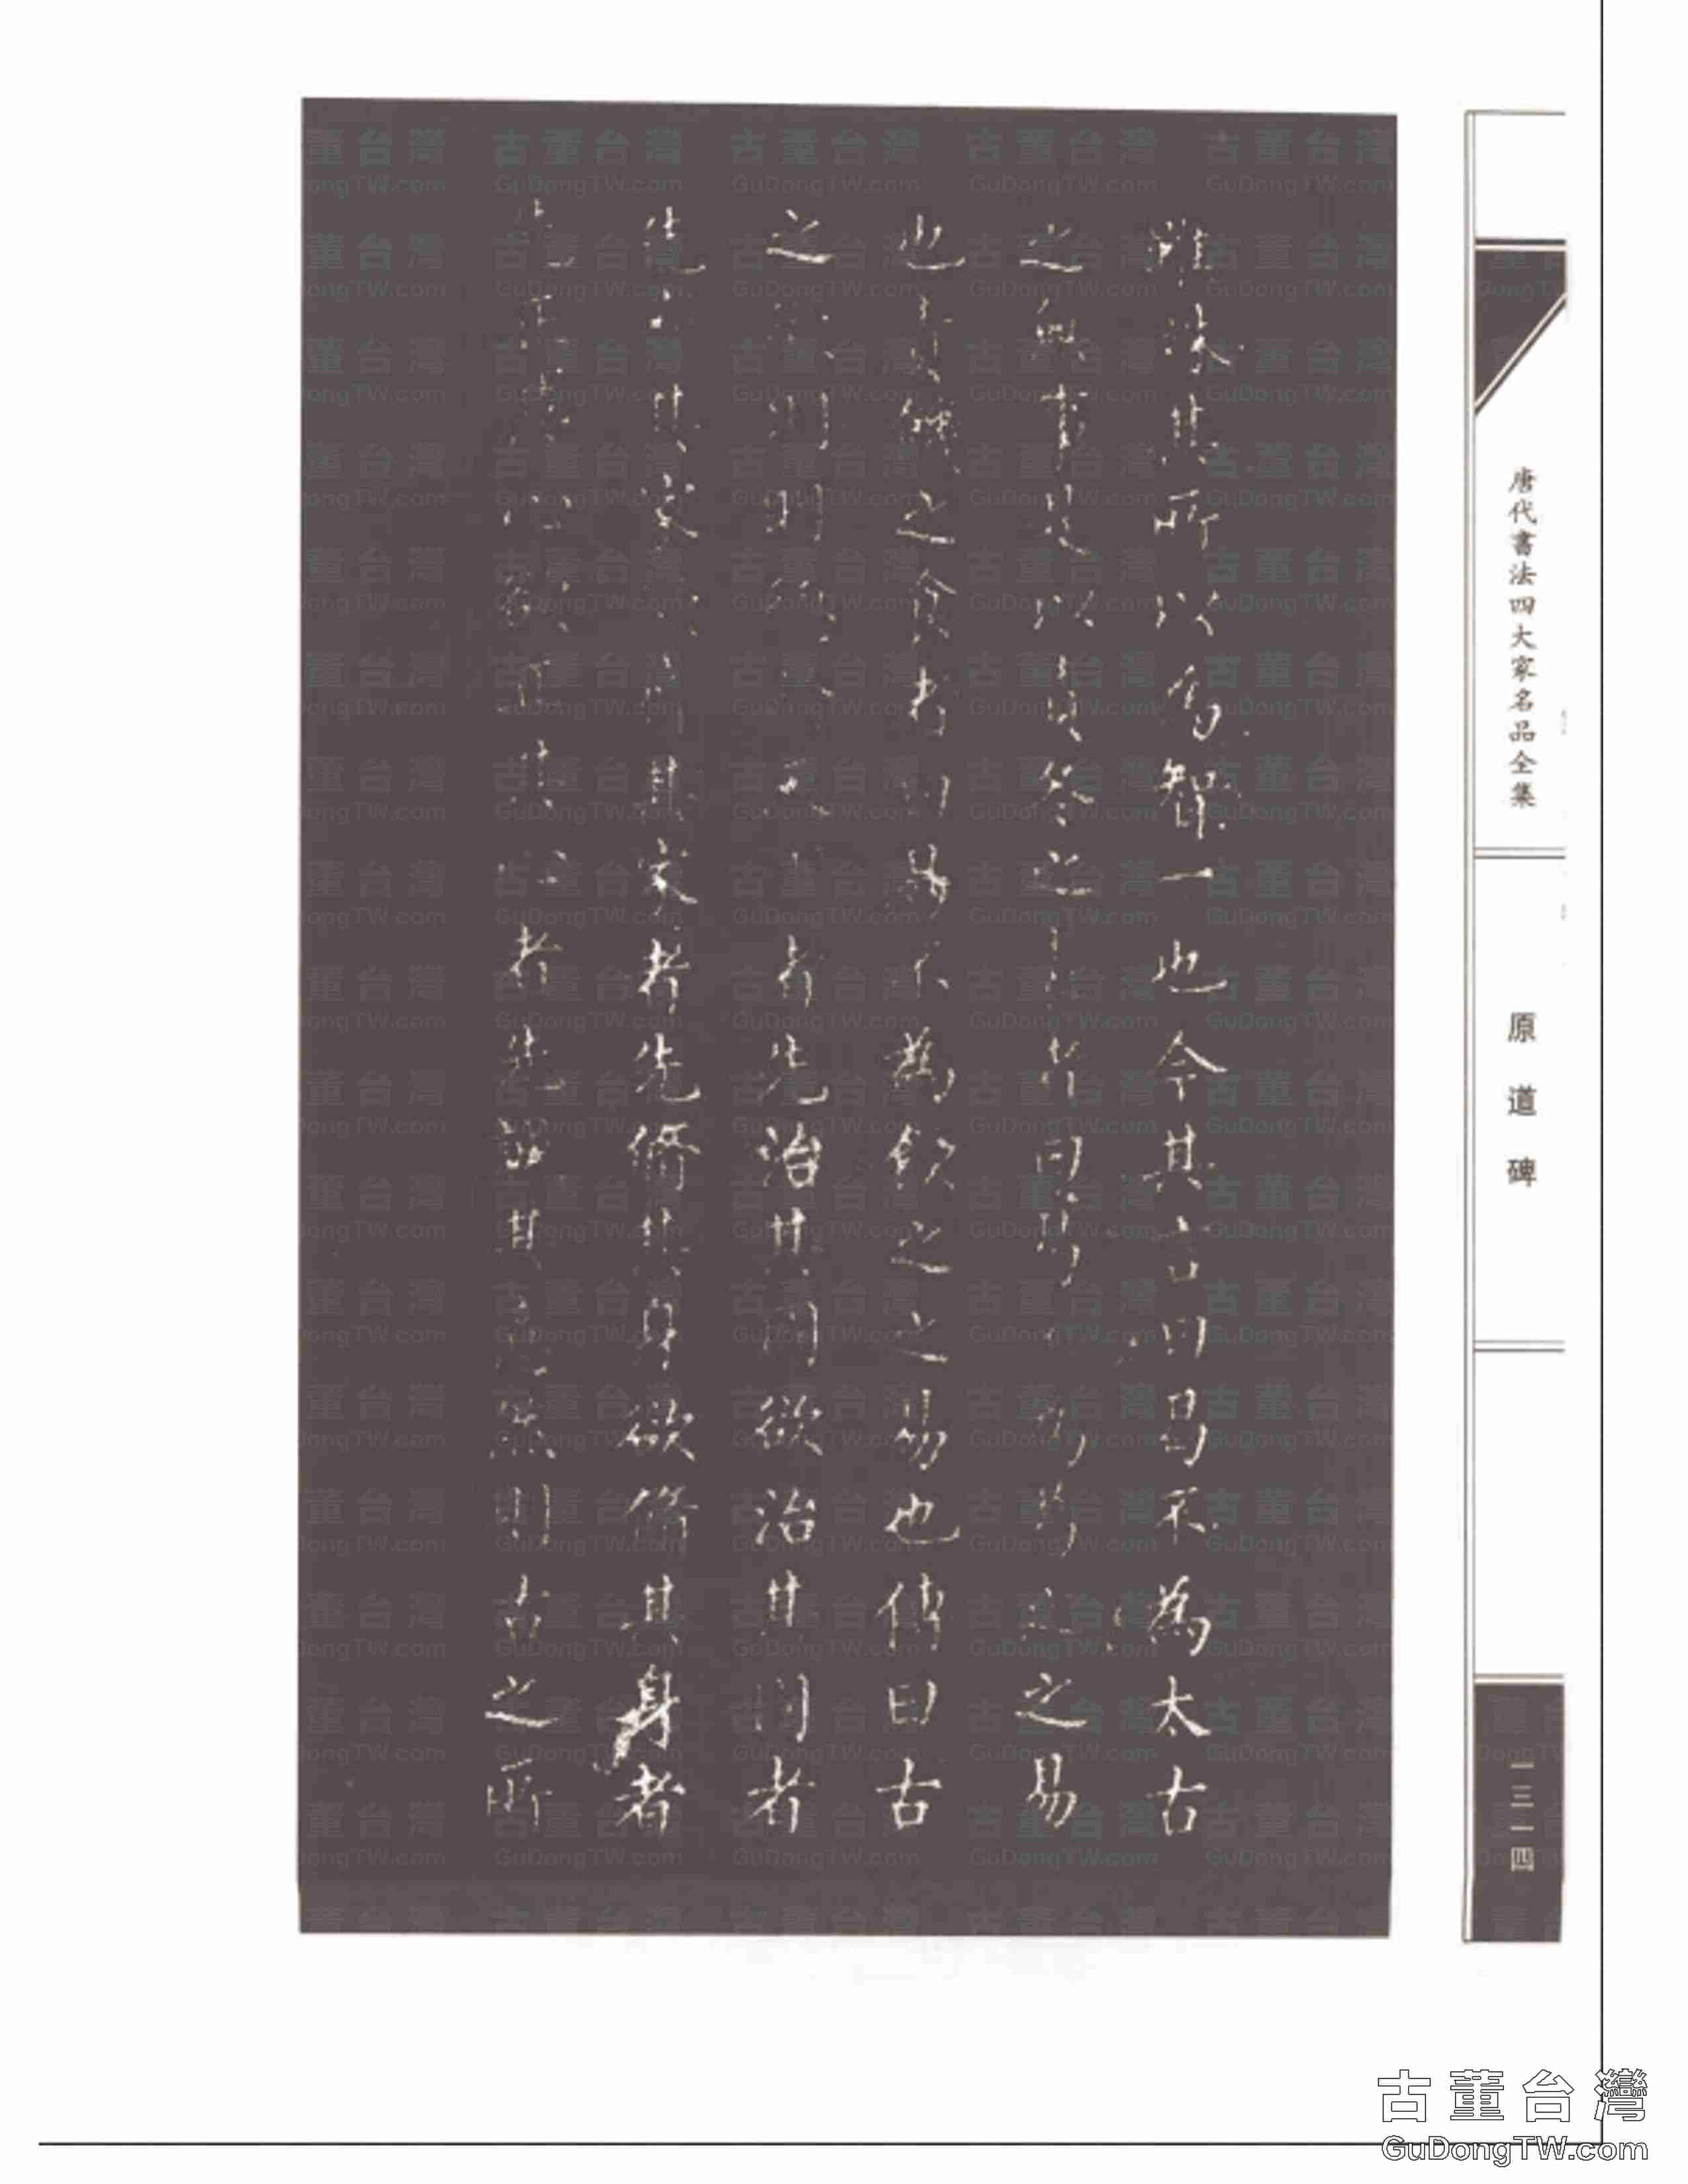 唐代書法四大家名品全集
原道碑
一三一四
雖殊其所以為智一也今其言曰曷不為太古
之無事是以責冬之裘者曰曷不為葛之之易
也責饑之食者曰曷不為飲之之易也傳曰古
之欲明明德於天下者先治其國欲治其國者
先齊其家欲齊其家者先脩其身欲脩其身者
先正其心欲正其心者先誠其意然則古之所
古董台灣
GuDongTW.com